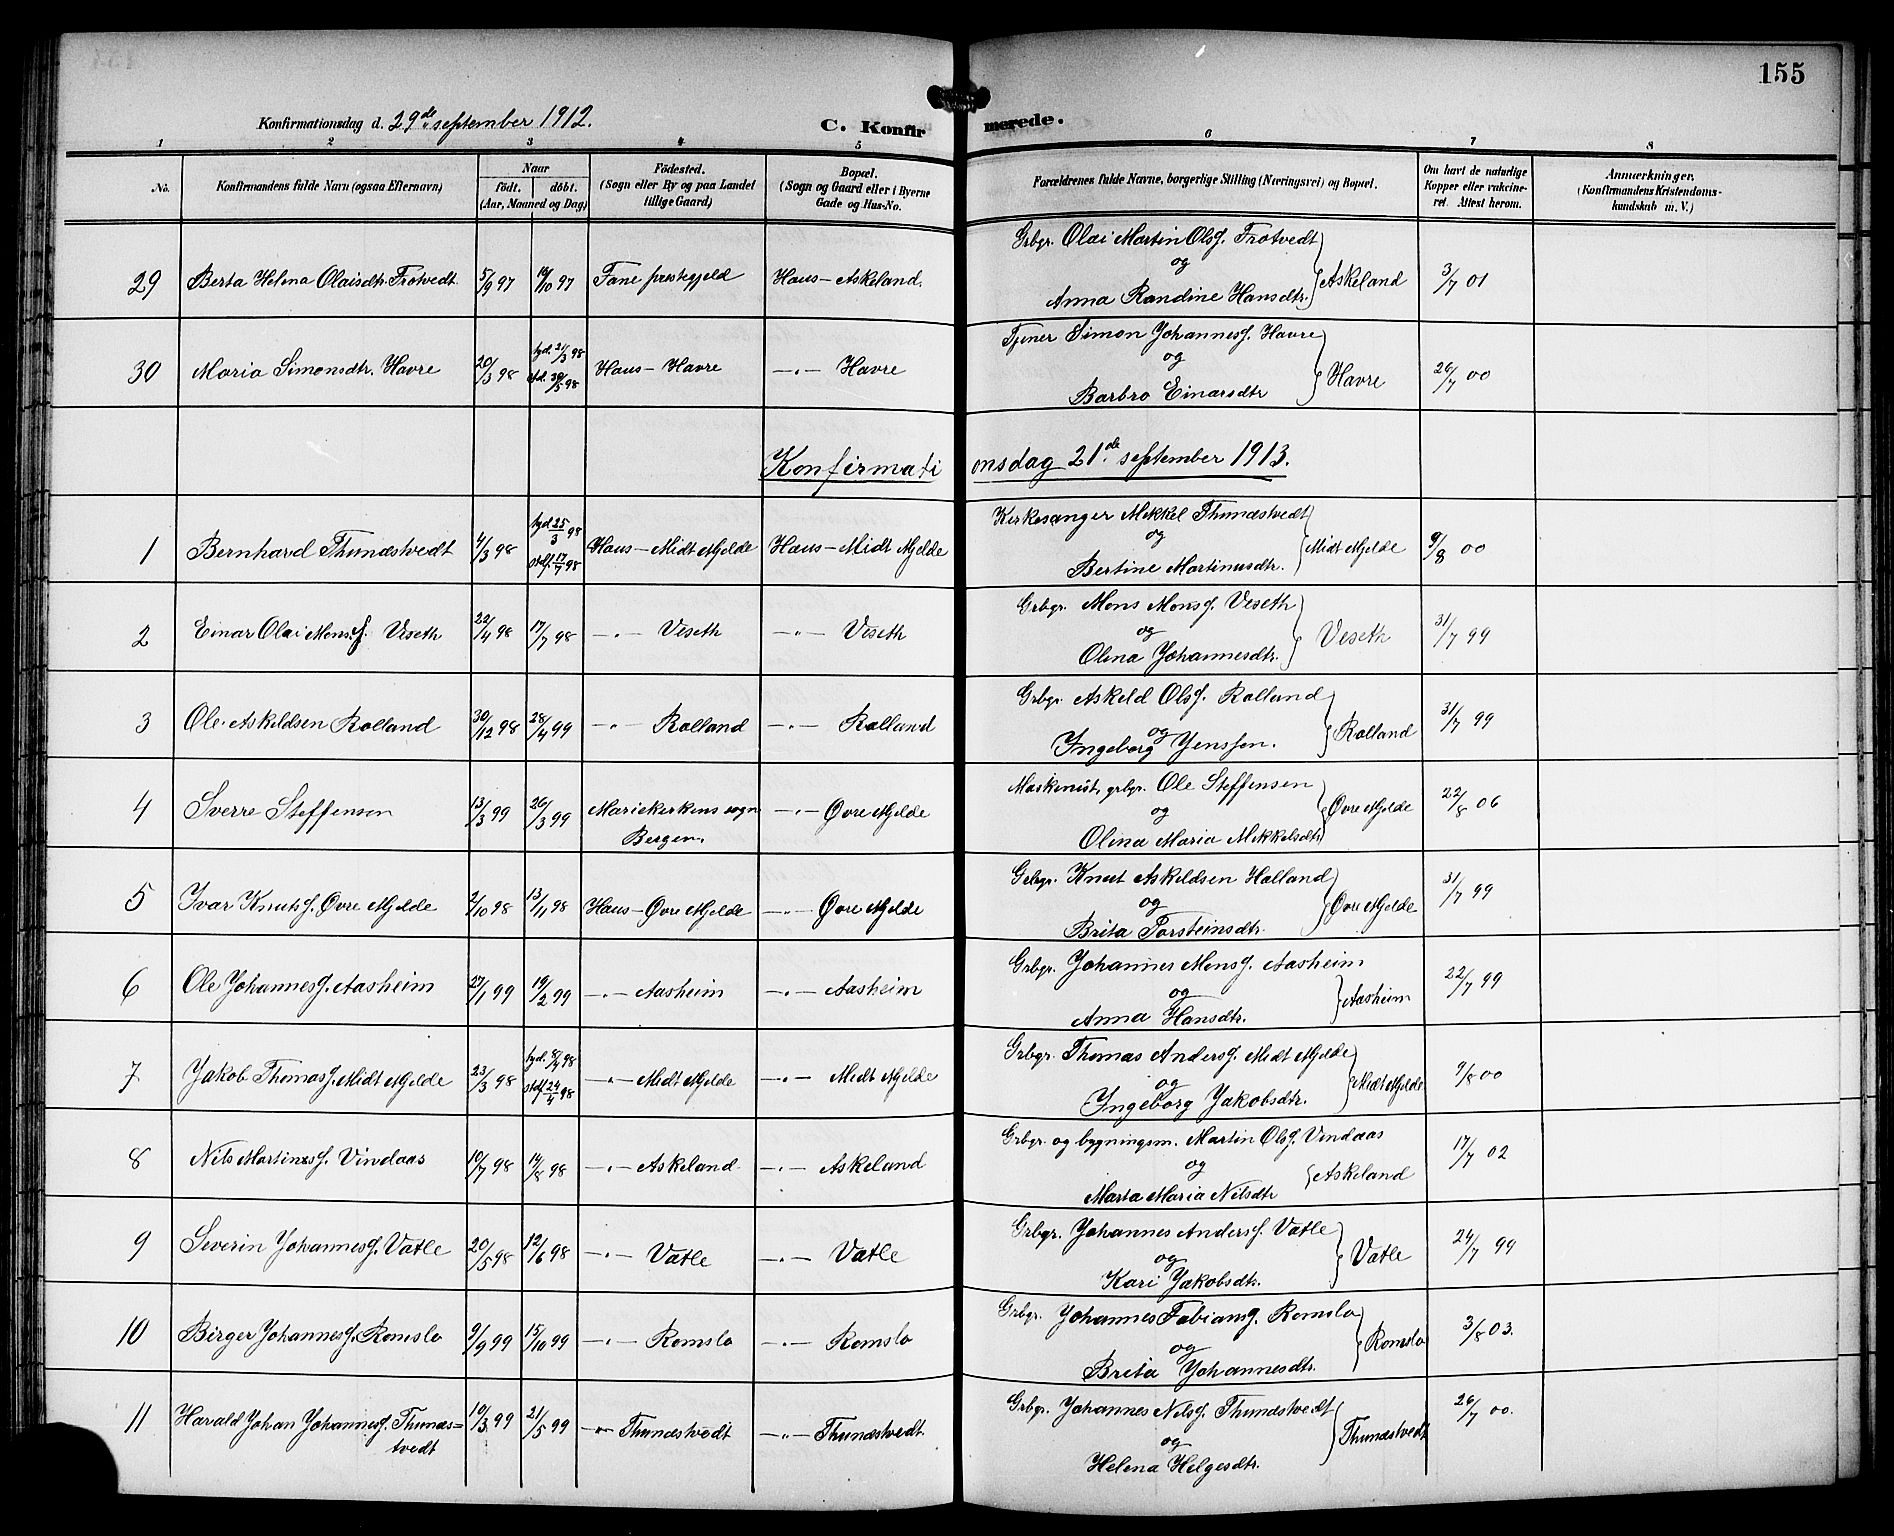 155
Konfirmationsdag d. 29de september 1912.
C. Konfirmerede.
1 2 3 4 5 6 7 8
No.
Konfirmandens fulde Navn (ogsaa Efternavn)
Naar
født. døbt.
(Aar, Maaned og Dag)
Fødested.
(Sogn eller By og paa Landet
tillige Gaard)
Bopæl.
(Sogn og Gaard eller i Byerne
Gade og Hus-No.
Forældrenes fulde Navne, borgerlige Stilling (Næringsvei) og Bopæl.
Om havt de naturlige
Kopper eller vakcine-
ret. Attest herom.
Anmærkninger.
(Konfirmandens Kristendoms-
kundskab m. V.)
29 Berta Helena Olaisdtr. Trotvedt 5/9 97 /10 97 Fane prestegjeld Haus - Askeland.
Grbgr. Olai Martin Olsf. Trotvedt
og
Anna Randine Hansdtr. } Askeland 3/7 01
30 Maria Simonsdtr. Havre 20/3 98 hjd. 21/3 98
st. 30/5 98 Haus - Havre -"- Havre
Tjener Simon Johannesf. Havre
og
Barbro Einarsdtr } Havre 26/7 00
Konfirmationsdag 21de september 1913.
1 Bernhard Thunæstvedt 4/3 98 hjd 25/3 98
stdf. 17/7 98 Haus - Midt Mjelde Haus - Midt Mjelde
Kirkesanger Mikkel Thunæstvedt
og
Bertine Martinusdtr. } Midt Mjelde 9/8 00
2 Einar Olai Monsf. Veseth 22/4 98 17/7 98 -"- Veseth -"- Veseth
Grbgr. Mons Monsf. Veseth
og
Olina Johannesdtr. } Veseth 31/7 99
3 Ole Askildsen Rolland 30/12 98 28/4 99 -"- Rolland -"- Rolland
Grbgr. Askeld Olsf. Rolland
og
Ingeborg Jenssen. } Rolland 31/7 99
4 Sverre Steffensen 13/3 99 26/3 99 Mariekirkens sogn
Bergen. -"- Øvre Mjelde
Maskenist, grbgr. Ole Steffensen
og
Olina Maria Mikkelsdtr } Øvre Mjelde 22/8 06
5 Ivar Knutsf. Øvre Mjelde 2/10 98 13/11 98 Haus - Øvre Mjelde -"- Øvre Mjelde
Grbgr. Knut Askildsen Halland
og
Brita Torsteinsdtr. } Øvre Mjelde 31/7 99
6 Ole Johannesf. Aasheim 27/1 99 19/2 99 -"- Aasheim -"- Aasheim
Grbgr. Johannes Monsf. Aasheim
og
Anna Hansdtr. } Aasheim 22/7 99
7 Jakob Thomasf. Midt Mjelde 23/3 98 hjd. 8/4 98
stdf 24/4 98 -"- Midt Mjelde -"- Midt Mjelde
Grbgr. Thomas Andersf. Midt Mjelde
og
Ingeborg Jakobsdtr. } Midt Mjelde 9/8 00
8 Nils Martinsf. Vindaas 10/7 98 14/8 98 -"- Askeland. -"- Askeland
Grbgr. og bygningsm. Martin Olsf. Vindaas
og
Marta Maria Nilsdtr } Askeland 17/7 02
9 Severin Johannesf. Vatle 20/5 98 12/6 98 -"- Vatle -"- Vatle
Grbgr. Johannes Andersf. Vatle
og
Kari Jakobsdtr. } Vatle 24/7 99
10 Birger Johannesf. Romslo 9/9 99 15/10 99 -"- Romslo -"- Romslo
Grbgr. Johannes Fabiansf. Romslo
og
Brita Johannesdtr. } Romslo 3/8 03.
11 Harald Johan Johannesf. Thunæs-
tvedt 10/3 99 21/5 99 -"- Thunæstvedt -"- Thunæstvedt.
Grbgr. Johannes Nilsf. Thunæstvedt
og
Helena Helgesdtr. } Thunæstvedt 26/7 00.